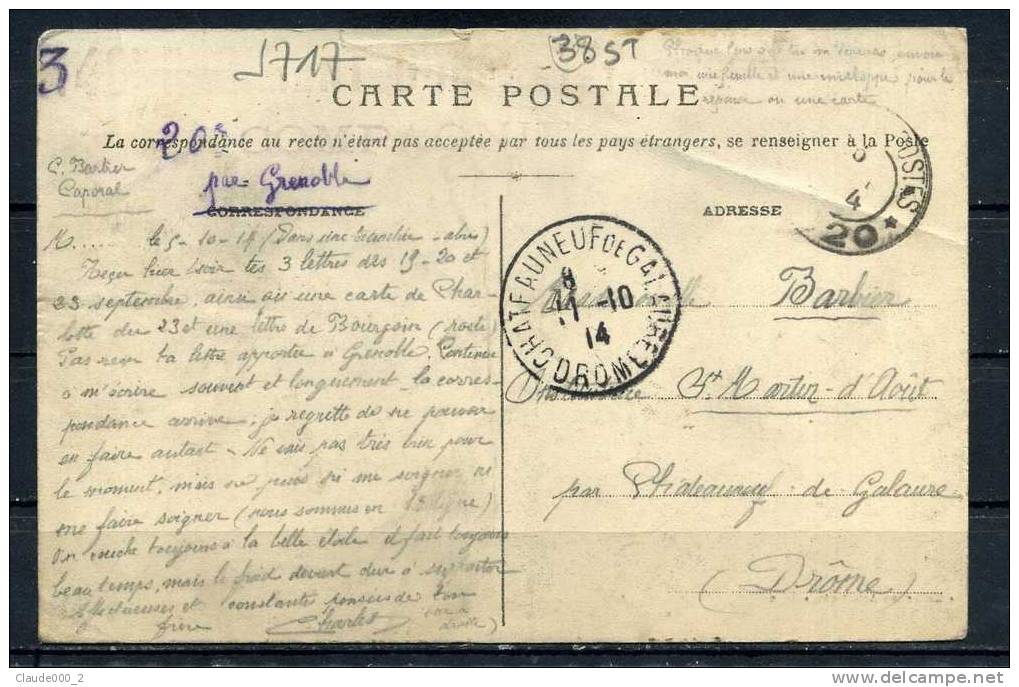 3
J717
38 ST
CARTE POSTALE
La correspondance au recto n'étant pas acceptée par tous les pays étrangers, se renseigner à la Poste
C. Barbier
Caporal
par Grenoble
CORRESPONDANCE
ADRESSE
POSTES
4
20
CHATEAUNEUF DE GALAURE
8
11 -10
14
DROME
Mademoiselle Barbier
Institutrice St Martin-d'Août
par Chateauneuf-de-Galaure
(Drôme)
le 5-10-14 (Dans une tranchée-abri)
Reçu hier soir tes 3 lettres des 19-20 et
23 septembre, ainsi qu'une carte de Char-
lotte du 23 et une lettre de Bourgoin (route)
Pas reçu ta lettre apportée à Grenoble. Continue
à m'écrire souvent et longuement, la corres-
pondance arrive; je regrette de ne pouvoir
en faire autant - Ne suis pas très bien pour
le moment, mais ne puis ni me soigner ni
me faire soigner (nous sommes en 1e ligne)
On couche toujours à la belle étoile il fait toujours
beau temps, mais le froid devient dur à supporter
Affectueuses et constantes pensées de ton
frère Charles
Claude000_2